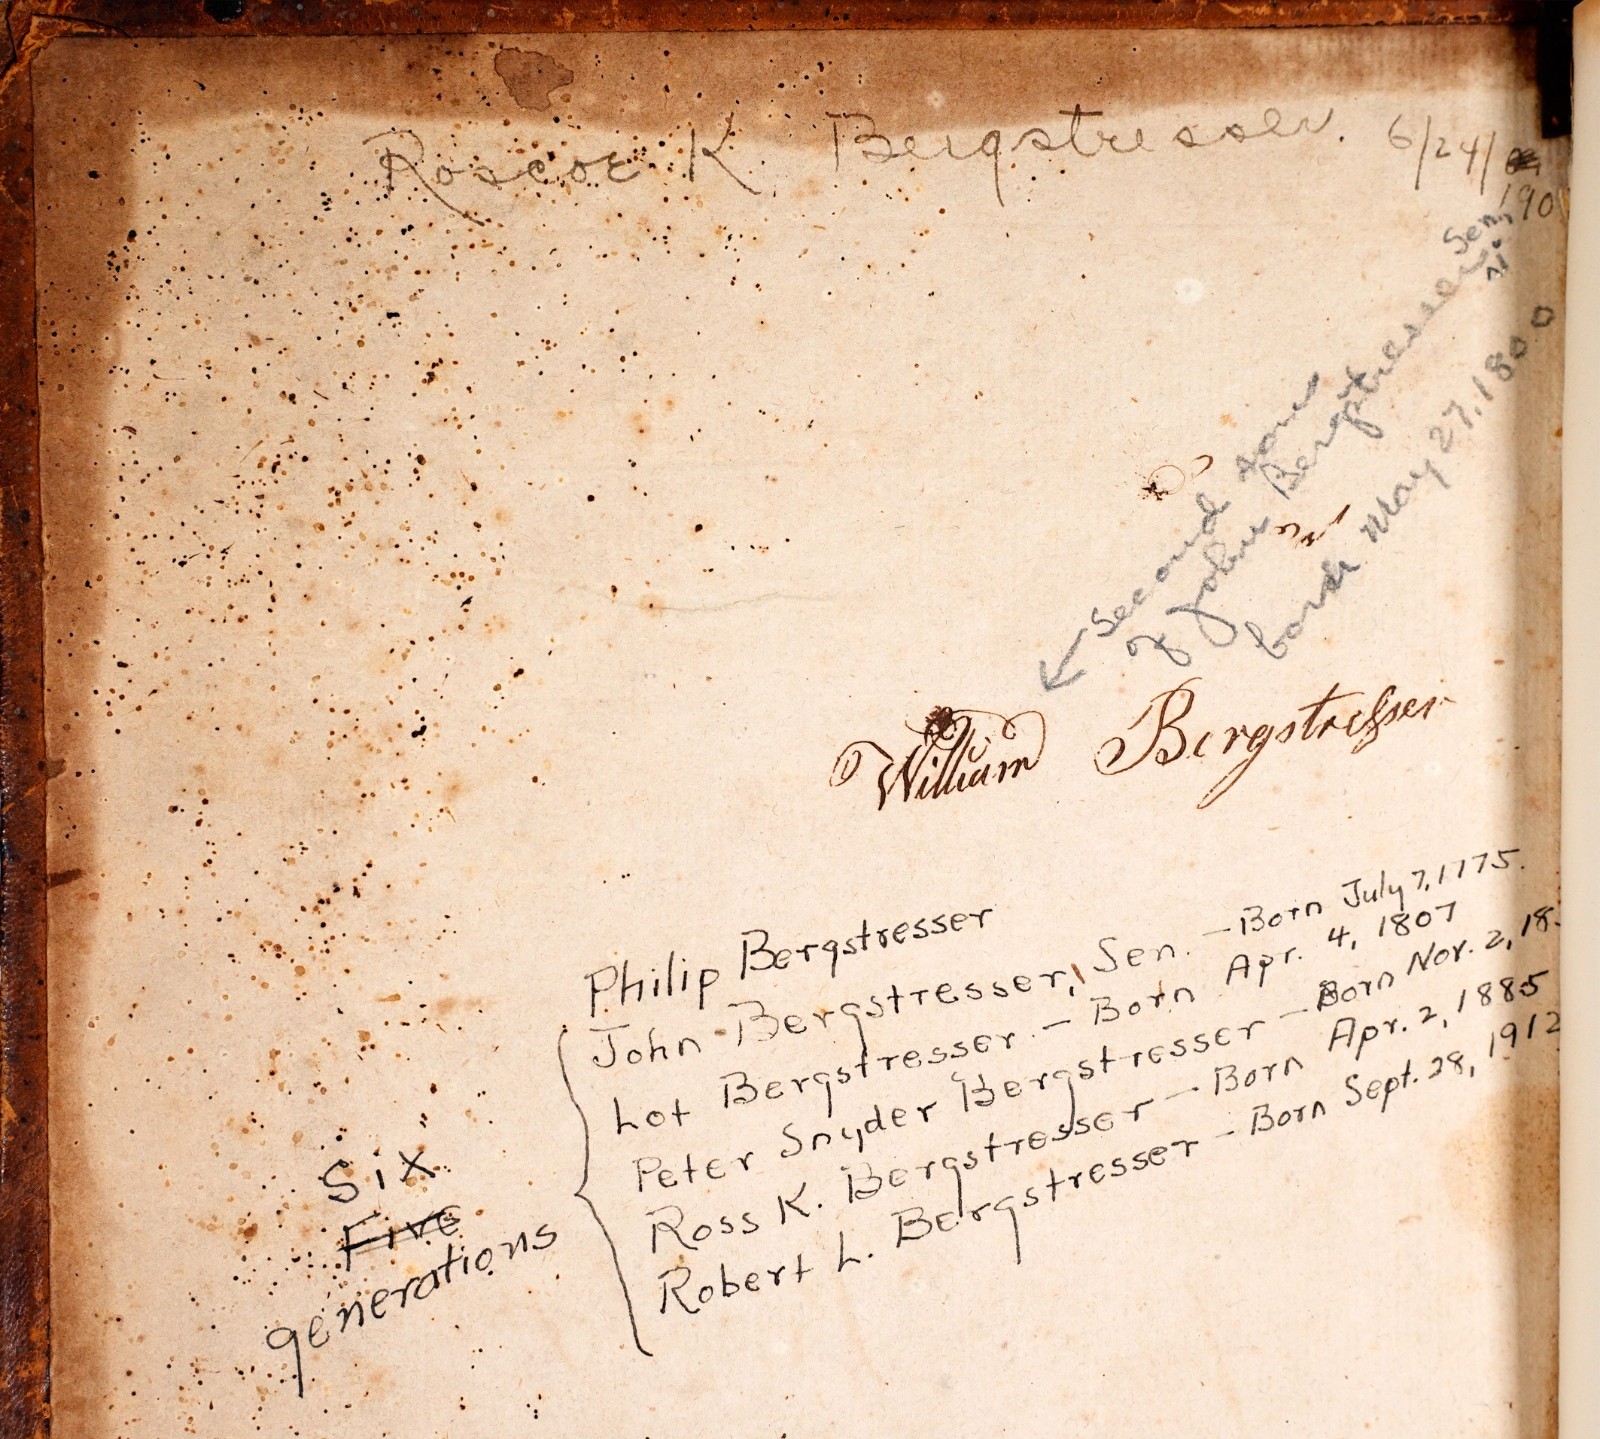 Roscoe K. Bergstresser. 6/24/
190
← Second son
of John Bergstresser Sen.
born May 27, 1800
William Bergstresser
Philip Bergstresser
John Bergstresser, Sen. - Born July 7, 1775.
Lot Bergstresser. - Born Apr. 4, 1807
Peter Snyder Bergstresser - Born Nov. 2, 18
Ross K. Bergstresser - Born Apr. 2, 1885
Robert L. Bergstresser - Born Sept. 28, 1912
Six
Five
generations